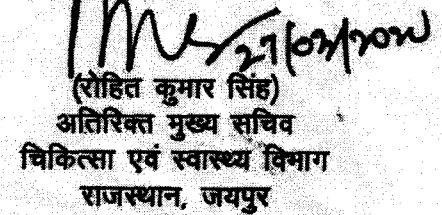 27/03/2020
(रोहित कुमार सिंह)
अतिरिक्त मुख्य सचिव
चिकित्सा एवं स्वास्थ्य विभाग
राजस्थान, जयपुर